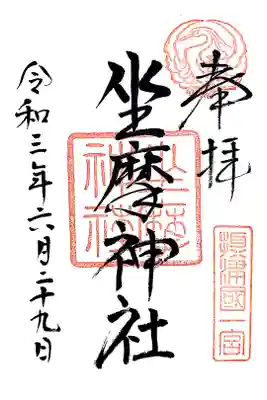 奉拝
攝津國一宮
坐摩神社
坐摩神社
令和三年六月二十九日